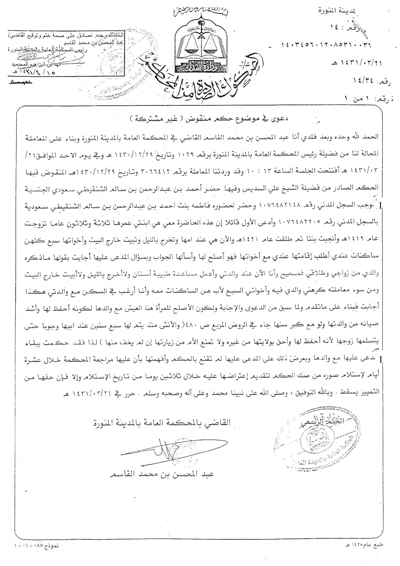 المدينة المنورة
١٤٣١/٠٣/٢١
١٤/٣٤
١ من ١
دعوى في موضوع حكم منقوض ( غير مشتركة )
الحمد لله وحده وبعد فلدي أنا عبد المحسن بن محمد القاسم القاضي في المحكمة العامة بالمدينة المنورة وبناء على المعاملة
المحالة لنا من فضيلة رئيس المحكمة العامة بالمدينة المنورة برقم ١٠٢٩ وتاريخ ١٤٣٠/١٢/٢٩هـ وفي يوم الاحد الموافق٢١/
١٤٣١/٠٣هـ افتتحت الجلسة الساعة ١٣ : ١٠ وفيها وردتنا المعاملة برقم وتاريخ ١٤٣٠/١٢/٢٩هـ المنقوض فيها
الحكم الصادر من فضيلة الشيخ علي السديس وفيها حضر أحمد بن عبدالرحمن بن سالم الشنقيطي سعودي الجنسية
بموجب السجل المدني رقم وحضر لحضوره فاطمة بنت أحمد بن عبدالرحمن بن سالم الشنقيطي سعودية
بالسجل المدني رقم وأدعى الأول قائلا إن هذه الحاضرة معي هي ابنتي عمرها ثلاثة وثلاثون عاما تزوجت
عام ١٤١٩هـ وأنجبت بنتا ثم طلقت عام ١٤٢١هـ والآن هي عند امها وتخرج بالليل وتبيت خارج البيت وأخواتها سبع كلهن
ساكنات عندي أطلب إقامتها عندي مع أخواتها فهو أصلح لها وأسألها الجواب وبسؤال المدعى عليها أجابت بقولها ماذكره
والدي من زواجي وطلاقي فصحيح وأنا الآن عند والدتي وأعمل مساعدة طبيبة أسنان ولاأخرج بالليل ولاأبيت خارج البيت
ومن سوء معاملته كرهني والدي فيه وأخواتي السبع لأب هن الساكنات معه وأنا أرغب في السكن مع والدتي هكذا
أجابت فبناء على ماتقدم ولما سبق من الدعوى والإجابة ولكون الأصلح للمرأة هذا العيش مع والدها لكونه أحفظ لها وأشد
صيانه من والدتها ولو مع كبر سنها جاء في الروض المربع ص ٤٨٠( والأنثى منذ يتم لها سبع سنين عند ابيها وجوبا حتى
يتسلمها زوجها لأنه أحفظ لها وأحق بولايتها من غيره ولا تمنع الأم من زيارتها إن لم يخف منها ) لذا فقد حكمت ببقاء
المدعى عليها مع والدها وبعرض ذلك على المدعى عليها لم تقنع بالحكم وأفهمتها بأن عليها مراجعة المحكمة خلال عشرة
أيام لإستلام صوره من صك الحكم لتقديم إعتراضها عليه خلال ثلاثين يوما من تاريخ الإستلام وإلا فإن حقها من
التمييز يسقط . وبالله التوفيق ، وصلى الله على نبينا محمد وعلى آله وصحبه وسلم . حرر في ١٤٣١/٠٣/٢١هـ
القاضي بالمحكمة العامة بالمدينة المنورة
عبد المحسن بن محمد القاسم
طبع عام ١٤٢٨ هـ